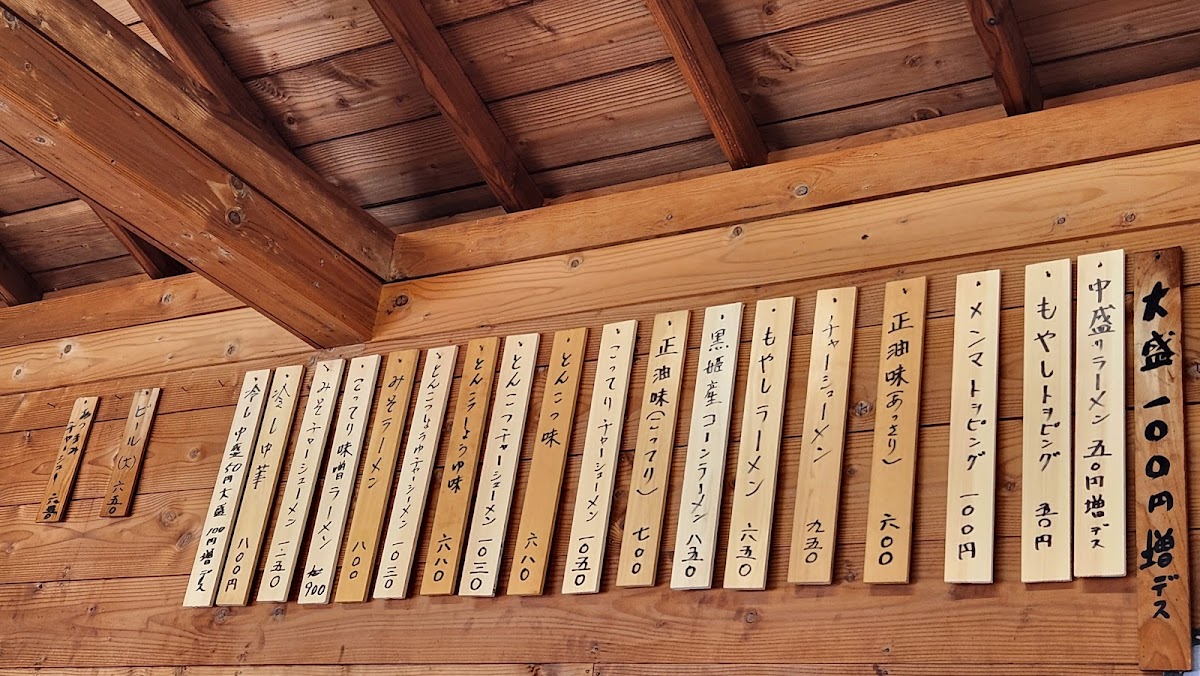 大盛一〇〇円増デス
中盛りラーメン 五〇円増デス
もやしトッピング 五〇円
メンマトッピング 一〇〇円
正油味(あっさり) 六〇〇
チャーシューメン 九五〇
もやしラーメン 六五〇
黒姫産コーンラーメン 八五〇
正油味(こってり) 七〇〇
こってりチャーシューメン 一〇五〇
とんこつ味 六八〇
とんこつチャーシューメン 一〇三〇
とんこつしょうゆ味 六八〇
とんこつしょうゆチャーシューメン 一〇三〇
みそラーメン 八〇〇
こってり味噌ラーメン 900
みそチャーシューメン 一一五〇
冷し中華 八〇〇円
冷し中盛50円大盛100円増デス
ビール(大) 六五〇
おつまみチャーシュー 六五〇